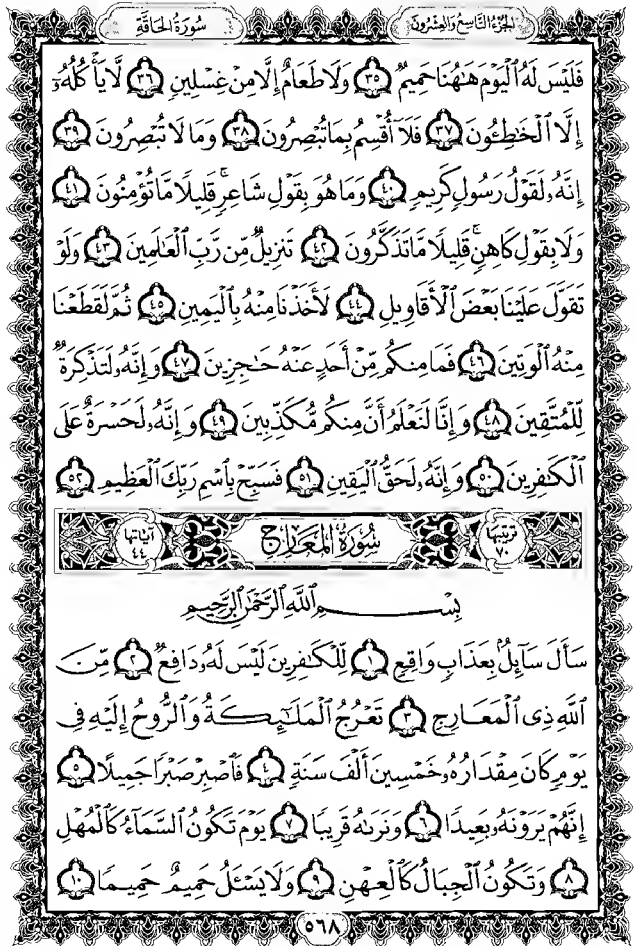 سُورَةُ الحَاقَّةِ
الجُزءُ التَّاسِعُ وَالعِشْرُونَ
فَلَيْسَ لَهُ ٱلْيَوْمَ هَٰهُنَا حَمِيمٌ ٣٥ وَلَا طَعَامٌ إِلَّا مِنْ غِسْلِينٍ ٣٦ لَّا يَأْكُلُهُۥٓ
إِلَّا ٱلْخَٰطِـُٔونَ ٣٧ فَلَآ أُقْسِمُ بِمَا تُبْصِرُونَ ٣٨ وَمَا لَا تُبْصِرُونَ ٣٩
إِنَّهُۥ لَقَوْلُ رَسُولٍ كَرِيمٍ ٤٠ وَمَا هُوَ بِقَوْلِ شَاعِرٍ ۚ قَلِيلًا مَّا تُؤْمِنُونَ ٤١
وَلَا بِقَوْلِ كَاهِنٍ ۚ قَلِيلًا مَّا تَذَكَّرُونَ ٤٢ تَنزِيلٌ مِّن رَّبِّ ٱلْعَٰلَمِينَ ٤٣ وَلَوْ
تَقَوَّلَ عَلَيْنَا بَعْضَ ٱلْأَقَاوِيلِ ٤٤ لَأَخَذْنَا مِنْهُ بِٱلْيَمِينِ ٤٥ ثُمَّ لَقَطَعْنَا
مِنْهُ ٱلْوَتِينَ ٤٦ فَمَا مِنكُم مِّنْ أَحَدٍ عَنْهُ حَٰجِزِينَ ٤٧ وَإِنَّهُۥ لَتَذْكِرَةٌ
لِّلْمُتَّقِينَ ٤٨ وَإِنَّا لَنَعْلَمُ أَنَّ مِنكُم مُّكَذِّبِينَ ٤٩ وَإِنَّهُۥ لَحَسْرَةٌ عَلَى
ٱلْكَٰفِرِينَ ٥٠ وَإِنَّهُۥ لَحَقُّ ٱلْيَقِينِ ٥١ فَسَبِّحْ بِٱسْمِ رَبِّكَ ٱلْعَظِيمِ ٥٢
ترتيبها ٧٠ سُورَةُ المَعَارِج آياتها ٤٤
بِسْمِ ٱللَّهِ ٱلرَّحْمَٰنِ ٱلرَّحِيمِ
سَأَلَ سَآئِلٌۢ بِعَذَابٍ وَاقِعٍ ١ لِّلْكَٰفِرِينَ لَيْسَ لَهُۥ دَافِعٌ ٢ مِّنَ
ٱللَّهِ ذِى ٱلْمَعَارِجِ ٣ تَعْرُجُ ٱلْمَلَٰٓئِكَةُ وَٱلرُّوحُ إِلَيْهِ فِى
يَوْمٍ كَانَ مِقْدَارُهُۥ خَمْسِينَ أَلْفَ سَنَةٍ ٤ فَٱصْبِرْ صَبْرًا جَمِيلًا ٥
إِنَّهُمْ يَرَوْنَهُۥ بَعِيدًا ٦ وَنَرَىٰهُ قَرِيبًا ٧ يَوْمَ تَكُونُ ٱلسَّمَآءُ كَٱلْمُهْلِ
٨ وَتَكُونُ ٱلْجِبَالُ كَٱلْعِهْنِ ٩ وَلَا يَسْـَٔلُ حَمِيمٌ حَمِيمًا ١٠
٥٦٨